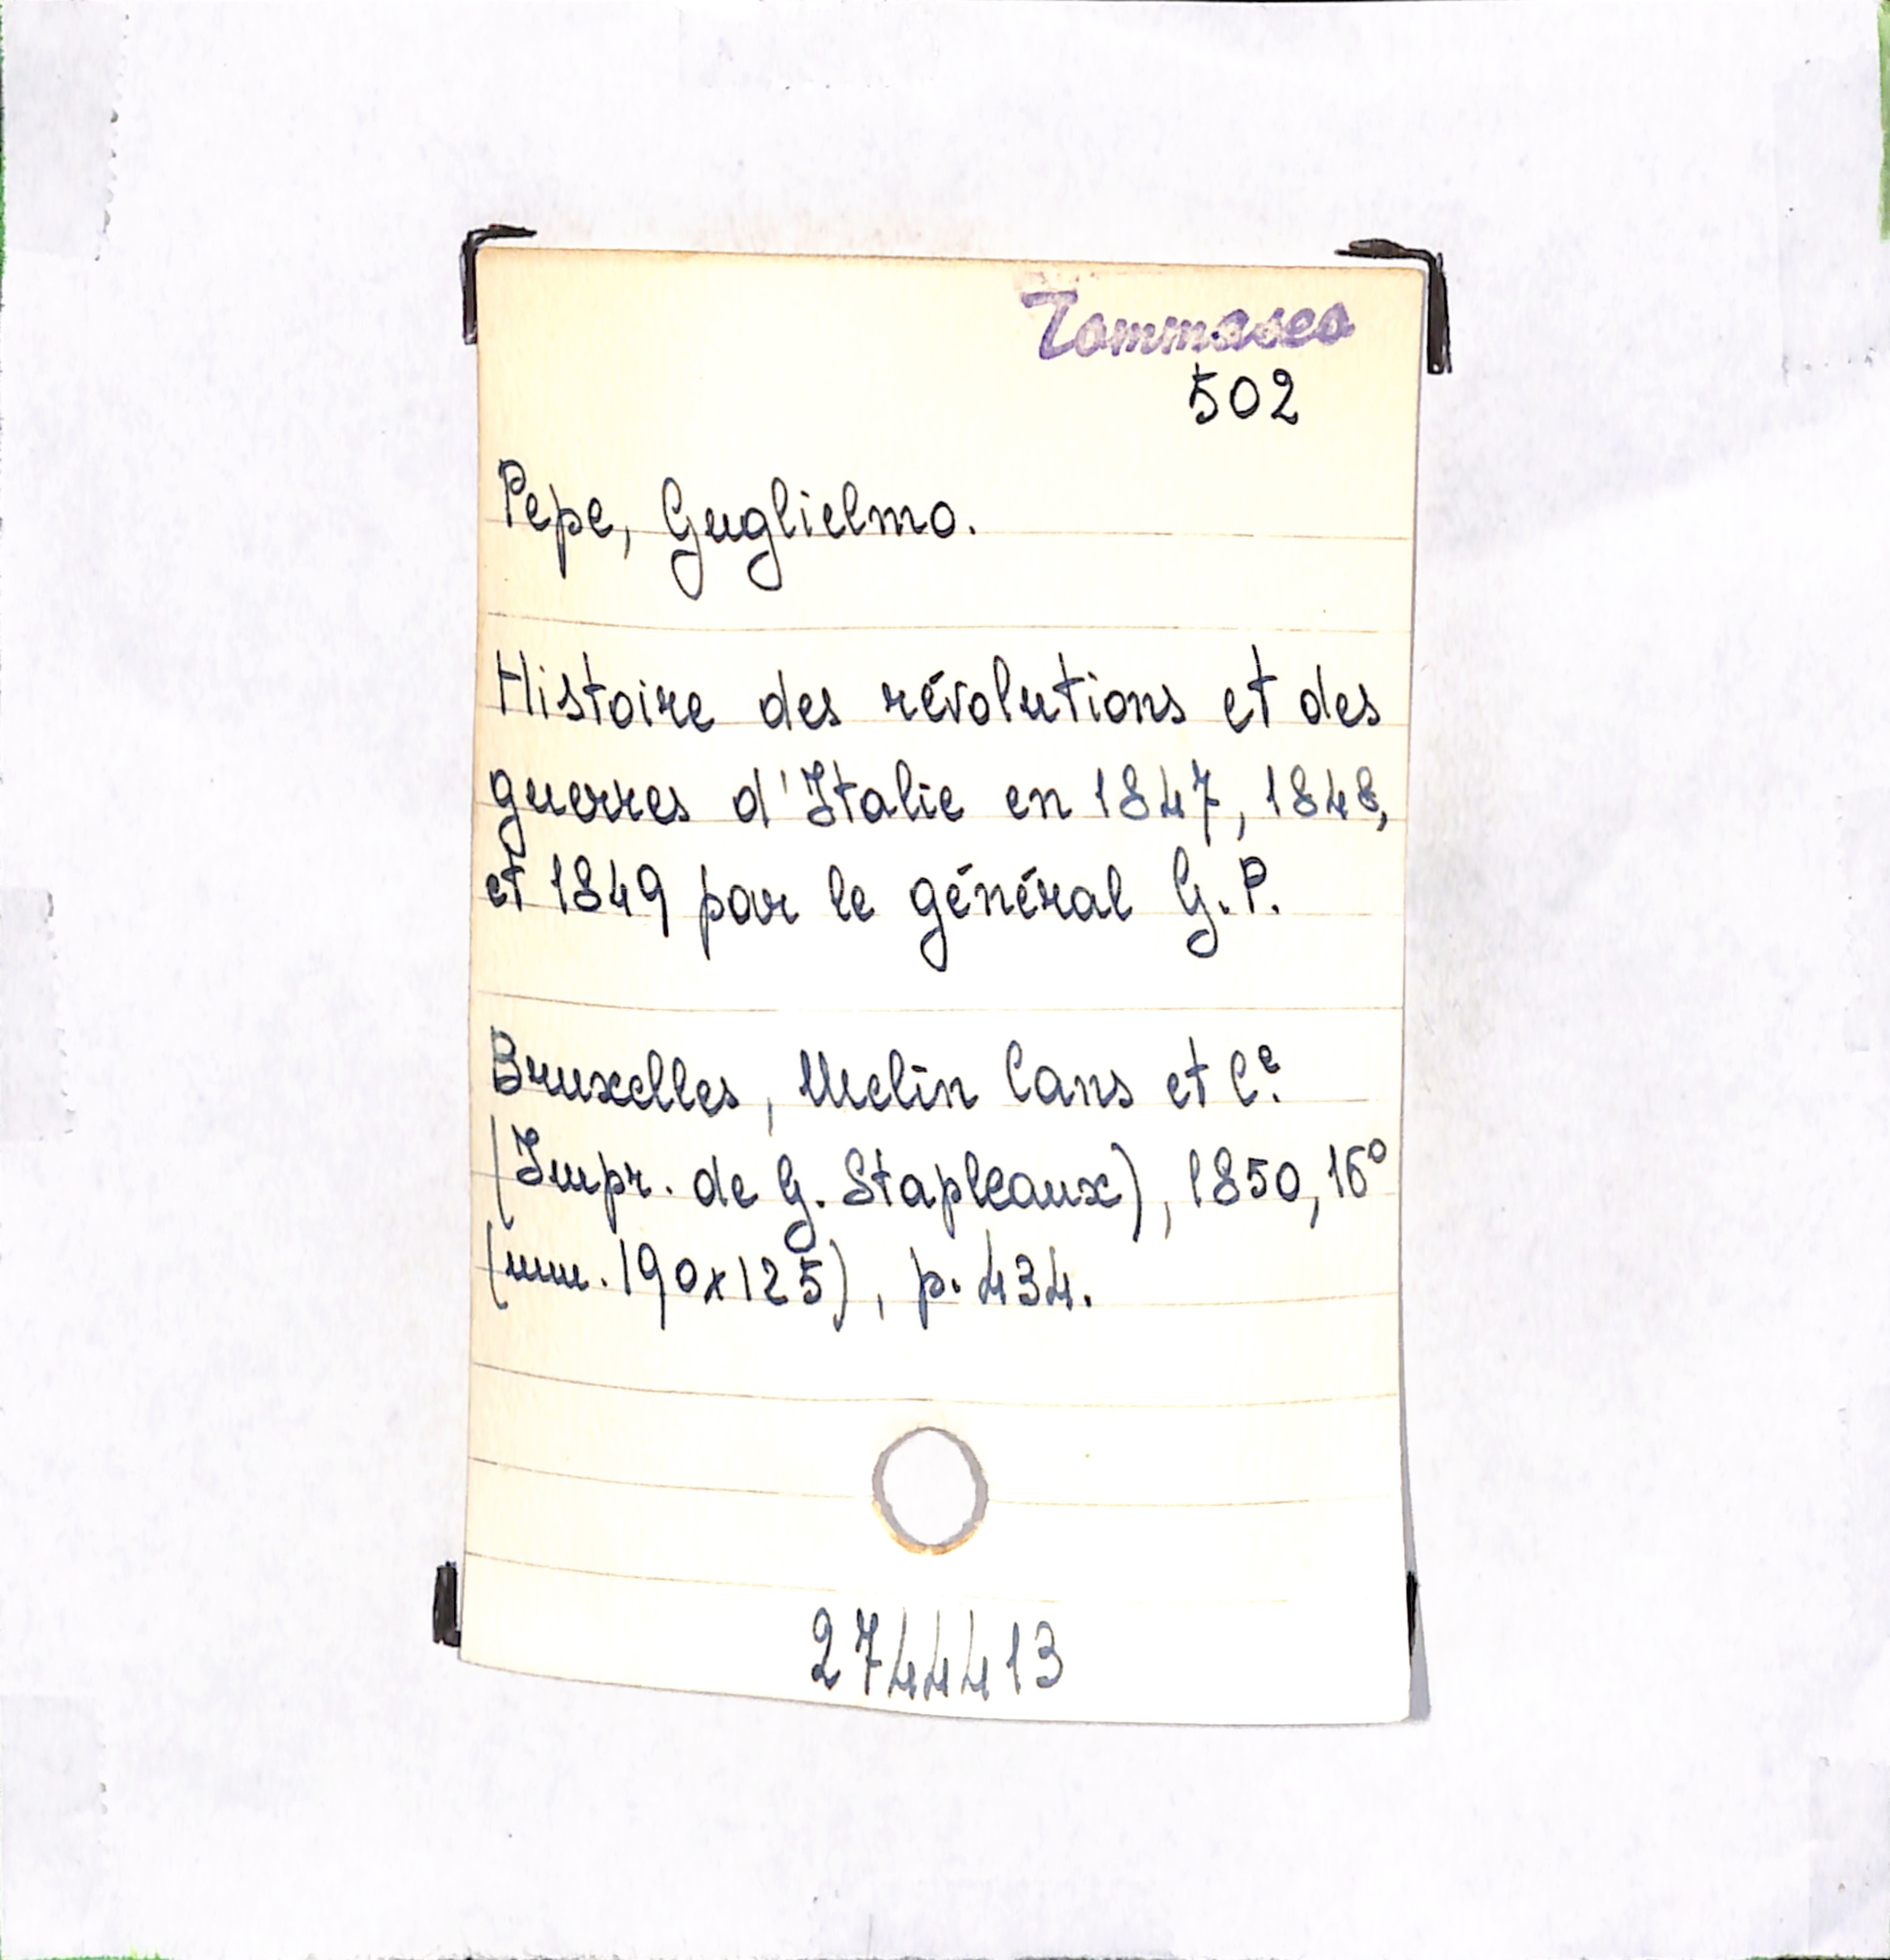 Tommaseo
502
Pepe, Guglielmo.
Histoire des révolutions et des
guerres d'Italie en 1847, 1848,
et 1849 par le général G.P.
Bruxelles, Melin Cans et C.e
(Impr. de G. Stapleaux), 1850, 16°
(mm. 190x125), p. 434.
2744413